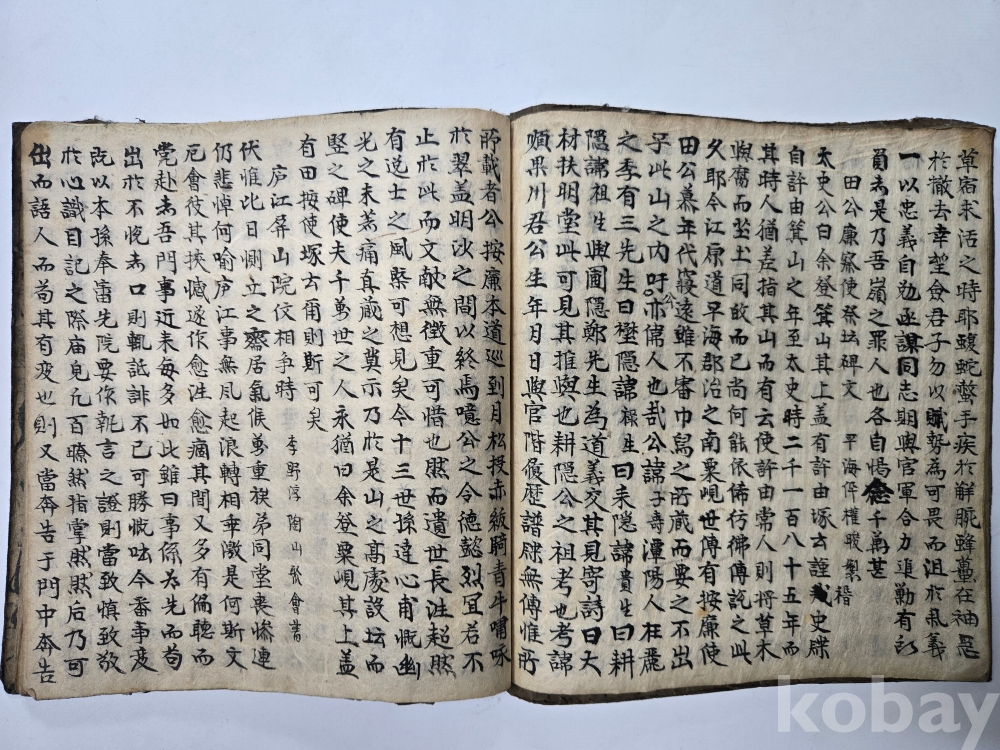 草宿求活之時耶蝮蛇螫手疾於解腕蜂蠆在袖急
於撤去幸望僉君子勿以賊勢為可畏而沮於氣義
一以忠義自勉亟謀同志期與官軍合力進勦有認
員去是乃吾嶺之罪人也各自惕念千萬甚
田公廉察使祭坛碑文 平海倅權晙製
楷
太史公曰余登箕山其上盖有許由塚云謹史牒
自許由箕山之年至太史時二千一百八十五年而
其時人猶差指其山而有云使許由常人則將草木
與腐而坐土同故而已尚何能依俙彷彿傳說之此
久耶今江原道平海郡治之南粟峴世傳有按廉使
田公墓年代寢遠雖不審巾舄之所蔵而要之不出
乎此山之內吁亦偉人也哉公諱子壽潭陽人在麗
公
之季有三先生曰壄隱諱祿生曰耒隱諱貴生曰耕
隱諱祖生與圃隱鄭先生為道義交其見寄詩曰大
材扶明堂此可見其推與也耕隱公之祖考也考諱
順果川君公生年月日與官階履歷譜牒無傳惟所
所載者公按廉本道巡到月松投赤紱騎青牛嘯咏
於翠盖明沙之間以終焉噫公之令德懿烈冝若不
止於此而文献無徵重可惜也然而遺世長往超然
有逃士之風槩可想見矣今十三世孫達心甫慨幽
光之未著痛真蔵之莫示乃於是山之高處設坛而
竪之碑使夫千萬世之人永猶曰余登粟峴其上盖
有田按使塚云爾則斯可矣
庐江屏山院位相爭時 李野淳陶山聚會書
伏惟比日惻立之齋居氣候萬重禩弟同堂喪慘連
仍悲悼何喻庐江事無風起浪轉相乖激是何斯文
厄會彼其挾憾遂作愈往愈痛其間又多有偏聽而
党赴去吾門事近来每多如此雖曰事係为先而苟
出於不悅去口則輒訿誹不已可勝慨呿今番事段
既以本孫奉審先院要作執言之證則當致慎致敬
於心識目記之際庙皃凢百瞭然指掌然然后乃可
出而語人而苟其有疑也則又當奔告于門中奔告
kobay